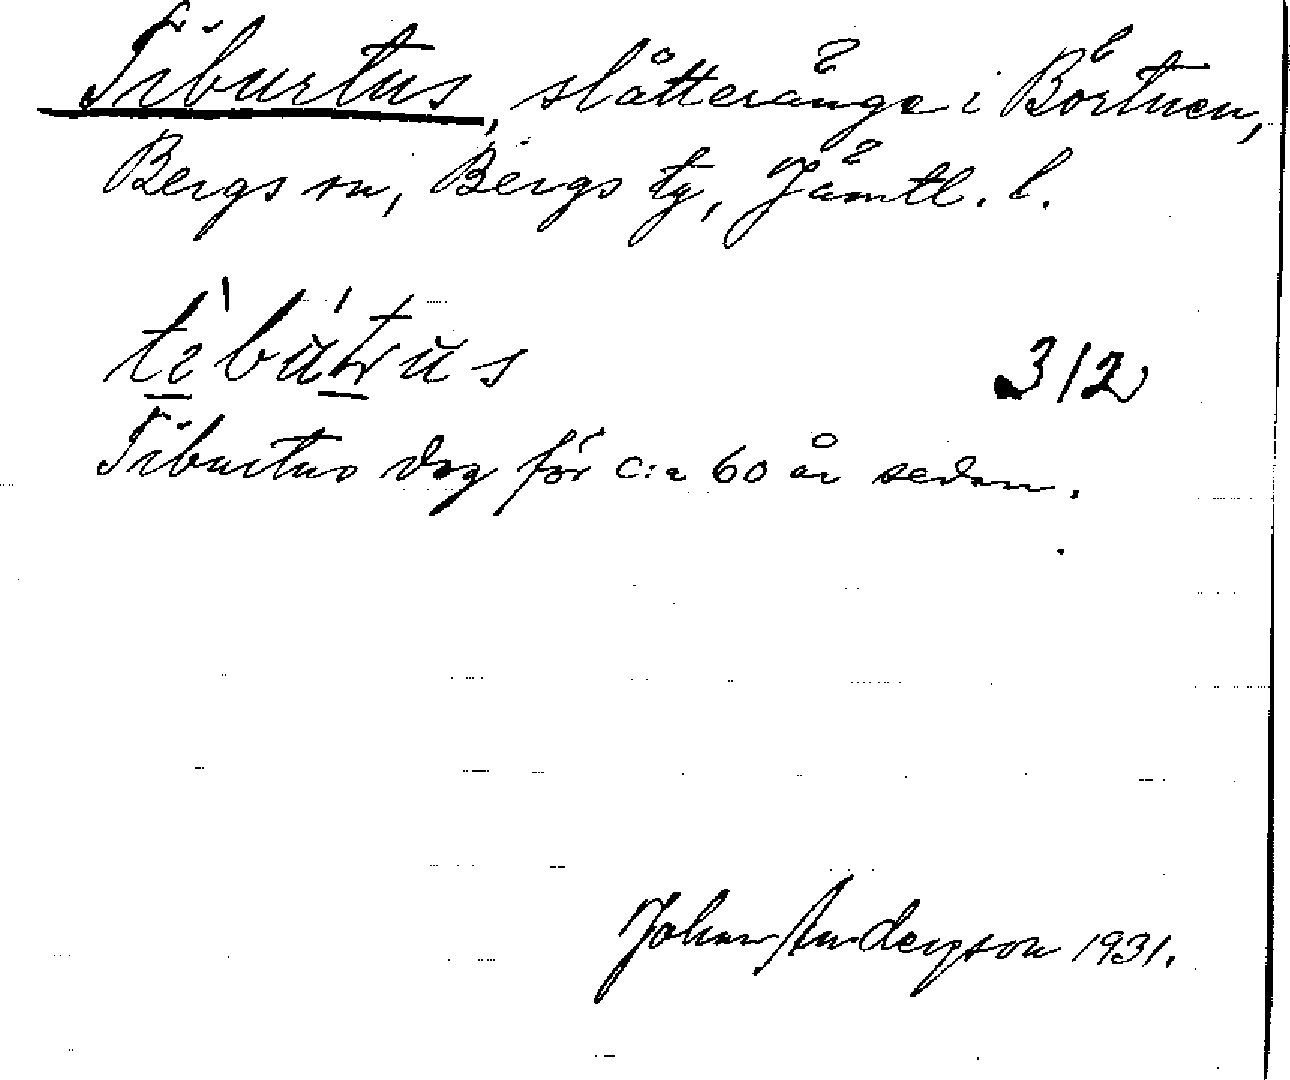 Tiburtus, slåtteränge i Börtnen,
Bergs sn, Bergs tg, Jämtl. l.
312
Tiburtus dog för c:a 60 år sedan.
Johan Anderson 1931.